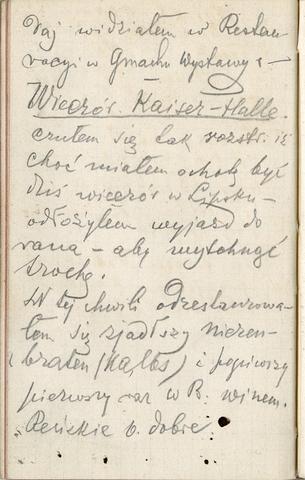 raj widziałem w Restau-
racyi w Gmachu Wystawy –
Wieczór. Kaiser-Halle.
czułem się tak rozstr. iż
choć miałem ochotę być
dziś wieczór w Lipsku –
odłożyłem wyjazd do
rana – aby wytchnąć
trochę.
W tej chwili odrestaurowa-
łem się zjadłszy Nieren-
braten (Kalbs) i popiwszy
pierwszy raz w B. winem.
Reńskie b. dobre.